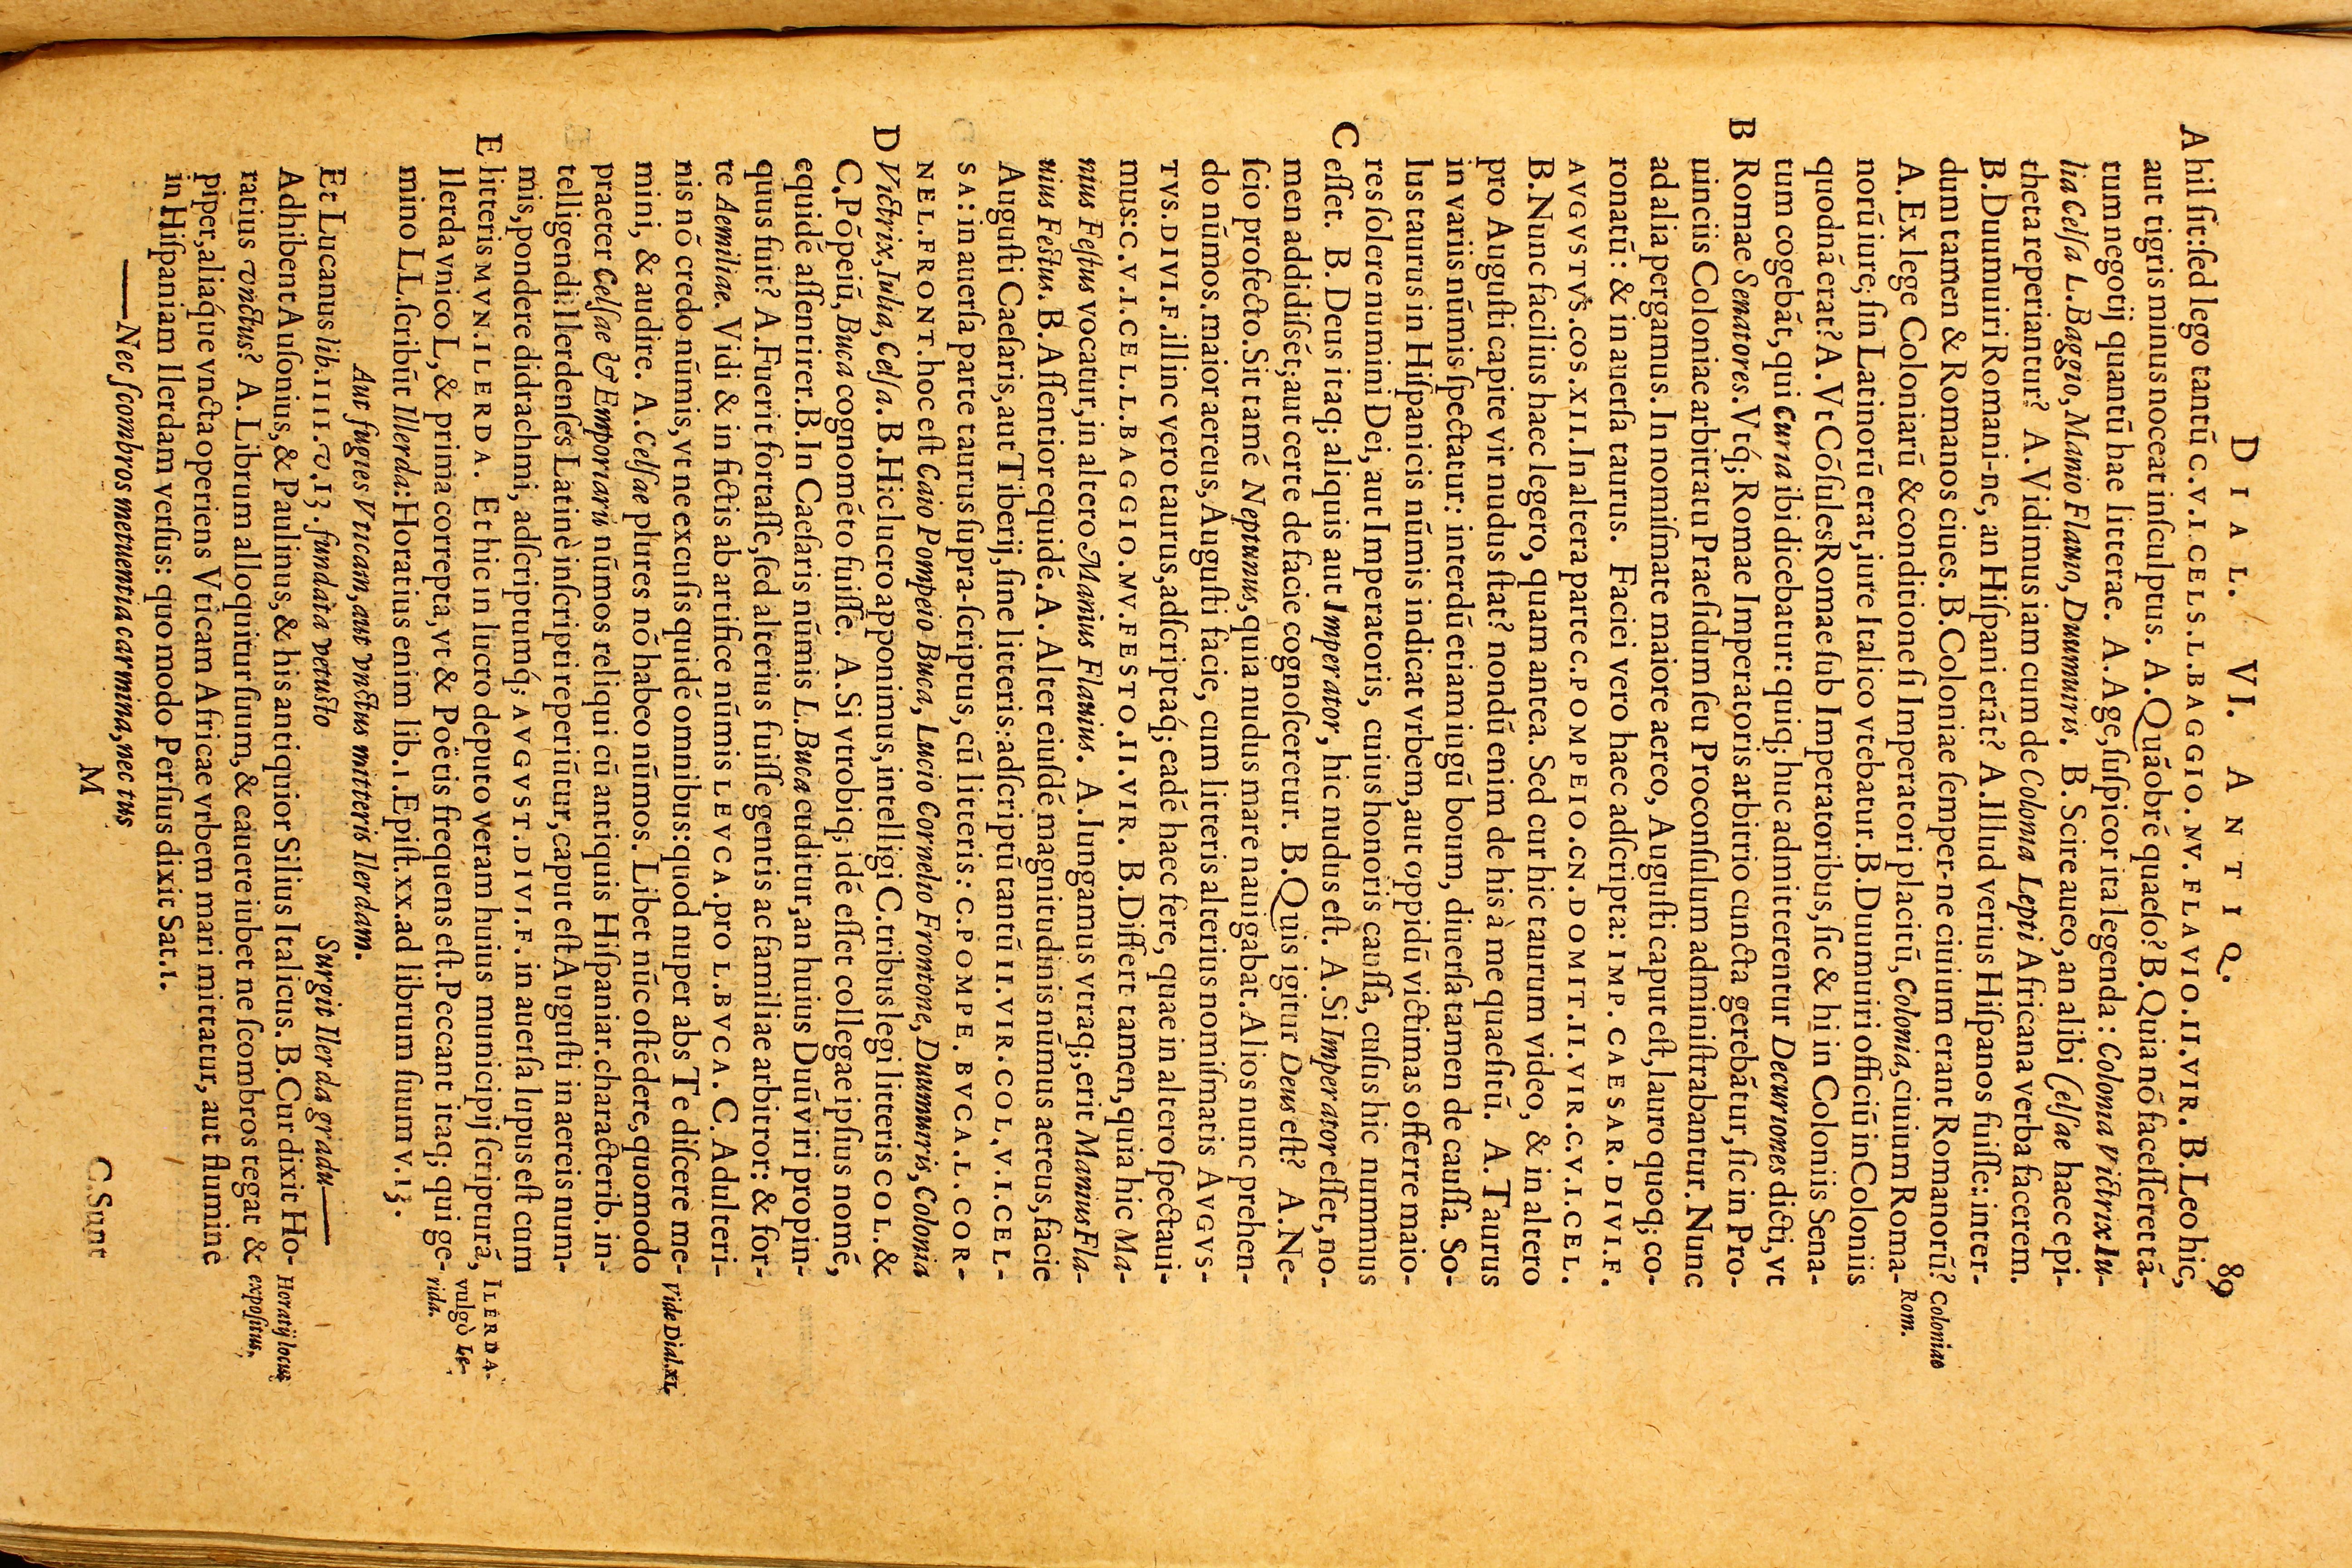 DIAL. VI. ANTIQ. 89
A hil sit: sed lego tantū C.V.I CELS.L.BAGGIO.MV.FLAVIO.II.VIR. B.Leo hic,
aut tigris minus noceat insculptus. A.Quāobrē quaeso? B.Quia nō facesseret tā-
tum negotij quantū hae litterae. A. Age, suspicor ita legenda: Colonia Victrix Iu-
lia Celsa L.Baggio, Manio Flauio, Duumuiris. B. Scire aueo, an alibi Celsae haec epi-
theta reperiantur? A. Vidimus iam cum de Colonia Lepti Africana verba facerem.
B.Duumuiri Romani-ne, an Hispani erāt? A.Illud verius Hispanos fuisse: inter-
dum tamen & Romanos ciues. B.Coloniae semper-ne ciuium erant Romanorū?
Coloniae
A. Ex lege Coloniarū & conditione si Imperatori placitū, Colonia, ciuium Roma-
Rom.
norū iure, sin Latinorū erat, iure Italico vtebatur. B.Duumuiri officiū in Coloniis
quodnā erat? A.Vt Cōsules Romae sub Imperatoribus, sic & hi in Coloniis Sena-
tum cogebāt, qui Curia ibi dicebatur: quiq; huc admitterentur Decuriones dicti, vt
B Romae Senatores. Vtq́; Romae Imperatoris arbitrio cuncta gerebātur, sic in Pro-
uinciis Coloniae arbitratu Praesidum seu Proconsulum administrabantur. Nunc
ad alia pergamus. In nomismate maiore aereo, Augusti caput est, lauro quoq; co-
ronatū: & in auersa taurus. Faciei vero haec adscripta: IMP. CAESAR. DIVI.F.
AVGVSTVS.COS.XII.In altera parte C.POMPEIO.CN.DOMIT.II.VIR.C.V.I.CEL.
B.Nunc facilius haec legero, quam antea. Sed cur hic taurum video, & in altero
pro Augusti capite vir nudus stat? nondū enim de his à me quaesitū. A. Taurus
in variis nūmis spectatur: interdū etiam iugū boum, diuersa tamen de caussa. So-
lus taurus in Hispanicis nūmis indicat vrbem, aut oppidū victimas offerre maio-
res solere numini Dei, aut Imperatoris, cuius honoris caussa, cusus hic nummus
C esset. B. Deus itaq; aliquis aut Imperator, hic nudus est. A.Si Imperator esset, no-
men addidissēt; aut certe de facie cognosceretur. B.Quis igitur Deus est? A.Ne-
scio profecto. Sit tamē Neptunus, quia nudus mare nauigabat. Alios nunc prehen-
do nūmos. maior aereus, Augusti facie, cum litteris alterius nomismatis AVGVS-
TVS.DIVI.F.illinc vero taurus, adscriptaq́; eadē haec fere, quae in altero spectaui-
mus: C.V.I.CEL.L.BAGGIO.MV.FESTO.II.VIR. B.Differt tamen, quia hic Ma-
nius Festus vocatur, in altero Manius Flauius. A.Iungamus vtraq; erit Manius Fla-
uius Festus. B. Assentior equidē. A. Alter eiusdē magnitudinis nūmus aereus, facie
Augusti Caesaris, aut Tiberij, sine litteris: adscriptū tantū II.VIR.COL.V.I.CEL-
SA: in auersa parte taurus supra-scriptus, cū litteris: C.POMPE. BVCA.L.COR-
NEL.FRONT. hoc est Caio Pompeio Buca, Lucio Cornelio Frontone, Duumuiris, Colonia
D Victrix, Iulia, Celsa. B.Hic lucro apponimus, intelligi C.tribus legi litteris COL. &
C.Pōpeiū, Buca cognomēto fuisse. A.Si vtrobiq; idē esset collegae ipsius nomē,
equidē assentirer. B.In Caesaris nūmis L.Buca cuditur, an huius Duūviri propin-
quus fuit? A.Fuerit fortasse, sed alterius fuisse gentis ac familiae arbitror: & for-
te Aemiliae. Vidi & in fictis ab artifice nūmis LEVCA.pro L.BVCA. C. Adulteri-
nis nō credo nūmis, vt ne excusis quidē omnibus: quod nuper abs Te discere me-
Vide Dial.XI.
mini, & audire. A. Celsae plures nō habeo nūmos. Libet nūc ostēdere, quomodo
praeter Celsae & Emporiarū nūmos reliqui cū antiquis Hispaniar. characterib. in-
telligendi: Ilerdenses Latinè inscripti reperiūtur, caput est Augusti in aereis num-
mis, pondere didrachmi, adscriptumq́; AVGVST.DIVI.F. in auersa lupus est cum
E litteris MVN.ILERDA. Et hic in lucro deputo veram huius municipij scripturā,
ILERDA
Ilerda vnico L, & prima correpta, vt & Poëtis frequens est. Peccant itaq; qui ge-
vulgò Le-
mino LL.scribūt Illerda: Horatius enim lib.1.Epist.XX.ad librum suum v.13.
rida.
Aut fugies Vticam, aut vnctus mitteris Ilerdam.
Et Lucanus lib.IIII.v.13. fundata vetusto Surgit Ilerda gradu——
Adhibent Ausonius, & Paulinus, & his antiquior Silius Italicus. B.Cur dixit Ho-
Horatij locus
ratius vnctus? A. Librum alloquitur suum, & cauere iubet ne scombros tegat &
expositus.
piper, aliaq́ue vncta operiens Vticam Africae vrbem mari mittatur, aut flumine
in Hispaniam Ilerdam versus: quo modo Persius dixit Sat.1.
——Nec scombros metuentia carmina, nec tus
M C.Sunt